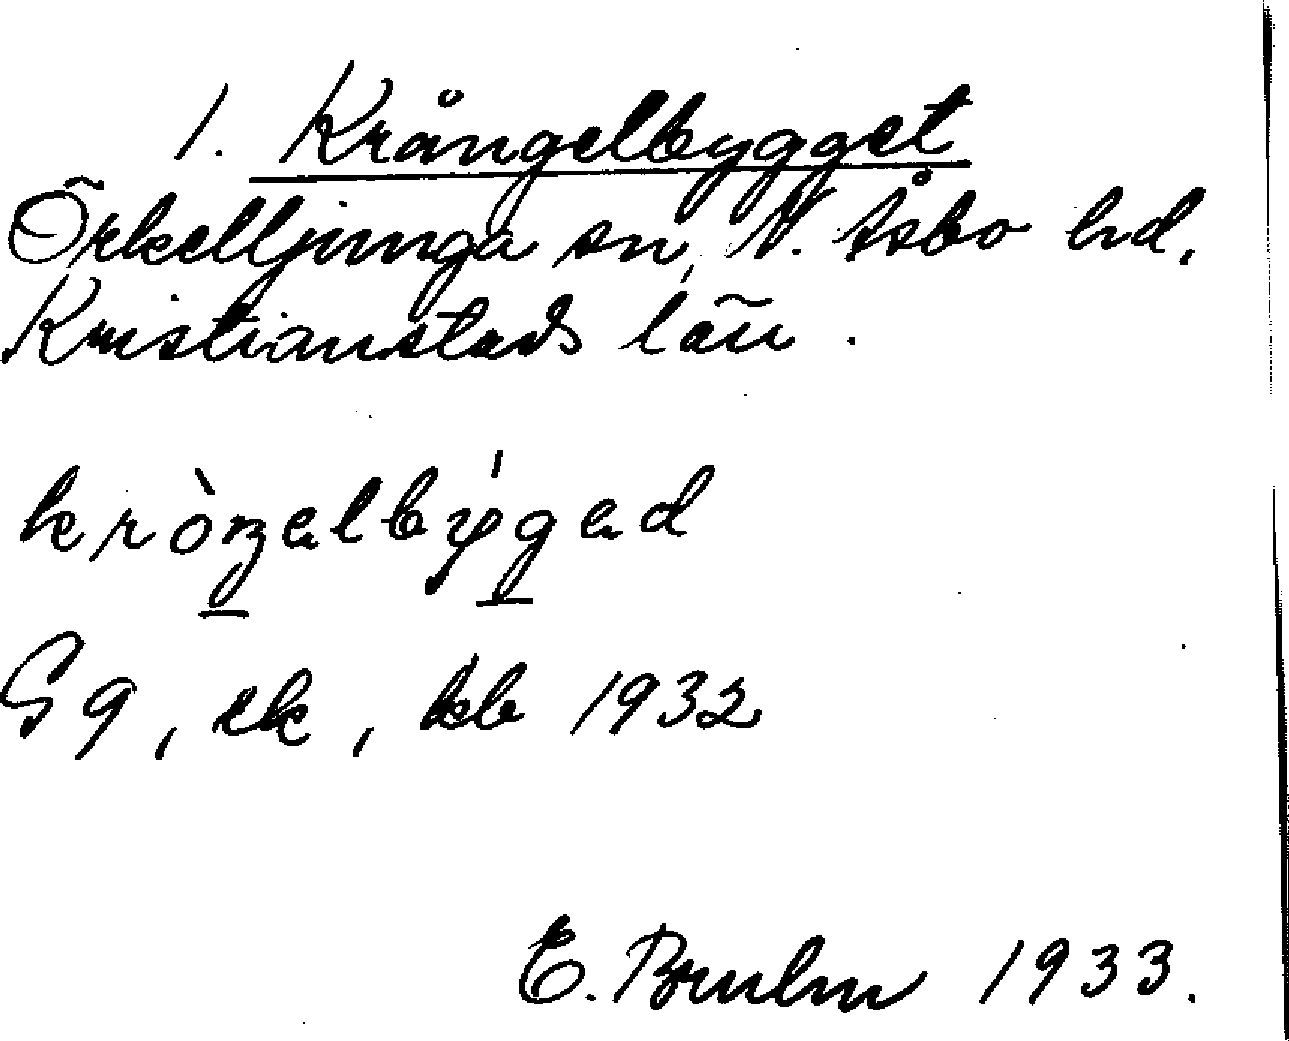 1. Krångelbygget
Örkelljunga sn, N. Åsbo hd,
Kristianstads län.
kròŋelbýged
Gg, ek, kb 1932
E. Bruhn 1933.